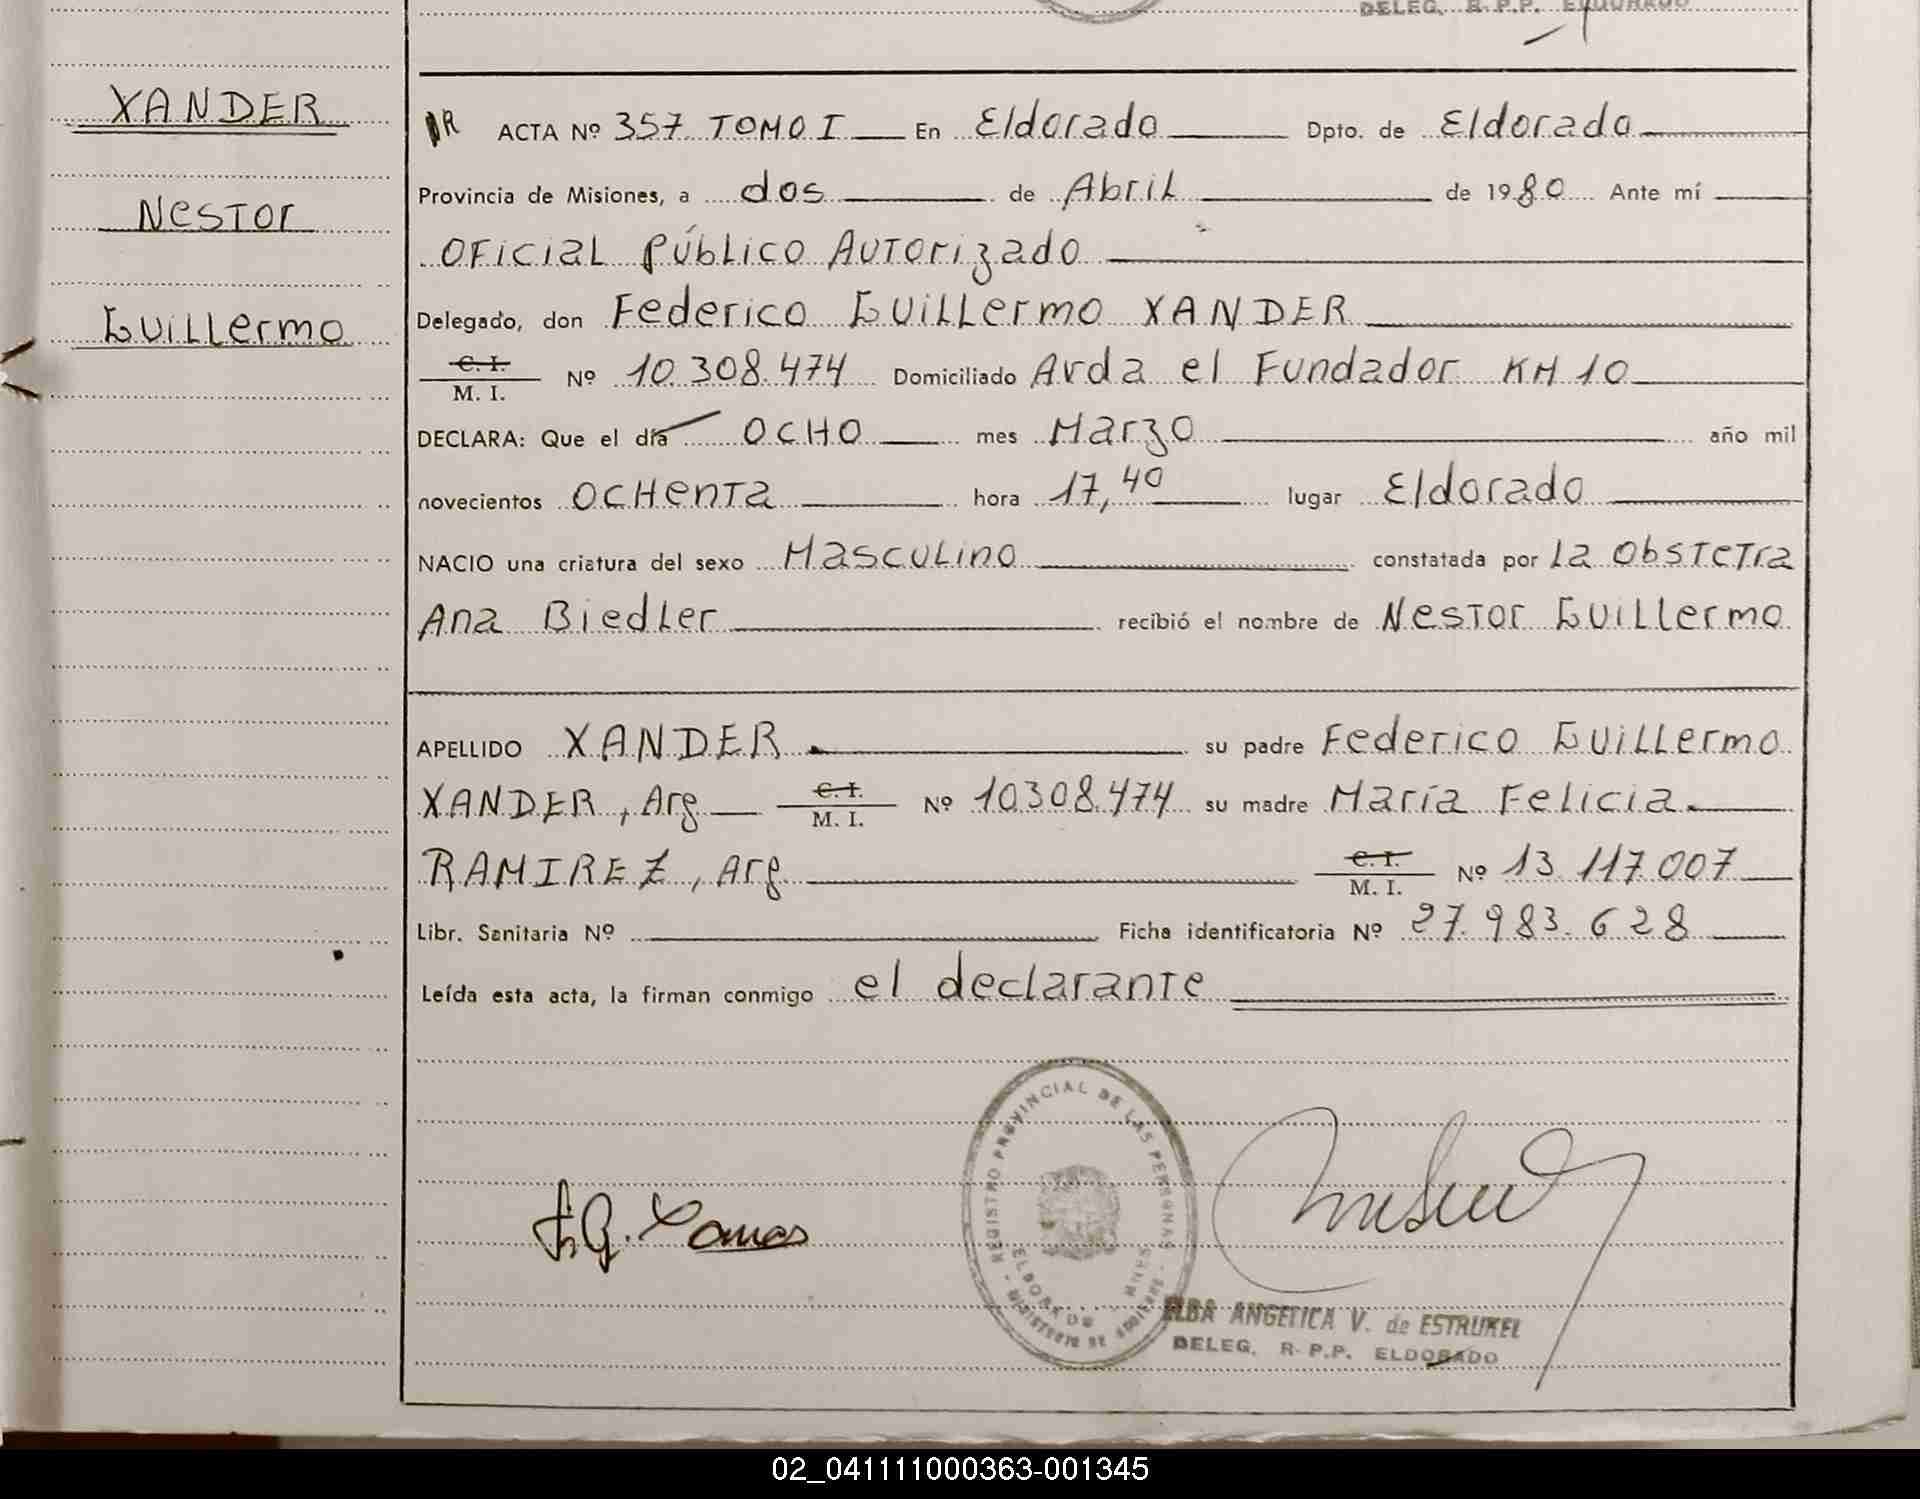 DELEG. R.P.P. ELDORADO
XANDER
Nestor
Guillermo
ACTA Nº 357 TOMO I En Eldorado Dpto. de Eldorado
Provincia de Misiones, a dos de Abril de 1980 Ante mí
Oficial Público Autorizado
Delegado, don Federico Guillermo XANDER
C. I.
M. I. Nº 10.308.474 Domiciliado Avda el Fundador KM 10
DECLARA: Que el día ocho mes Marzo año mil
novecientos ochenta hora 17,40 lugar Eldorado
NACIO una criatura del sexo Masculino constatada por la obstetra
Ana Biedler recibió el nombre de Nestor Guillermo
APELLIDO XANDER su padre Federico Guillermo
XANDER, Arg C. I. M. I. Nº 10.308.474 su madre María Felicia
RAMIREZ, Arg. C. I. M. I. Nº 13 117.007
Libr. Sanitaria Nº Ficha identificatoria Nº 27.983.628
Leída esta acta, la firman conmigo el declarante
REGISTRO PROVINCIAL DE LAS PERSONAS
ELDORADO MNES
MINISTERIO DE GOBIERNO
ELBA ANGELICA V. de ESTRUKEL
DELEG. R.P.P. ELDORADO
02_041111000363-001345